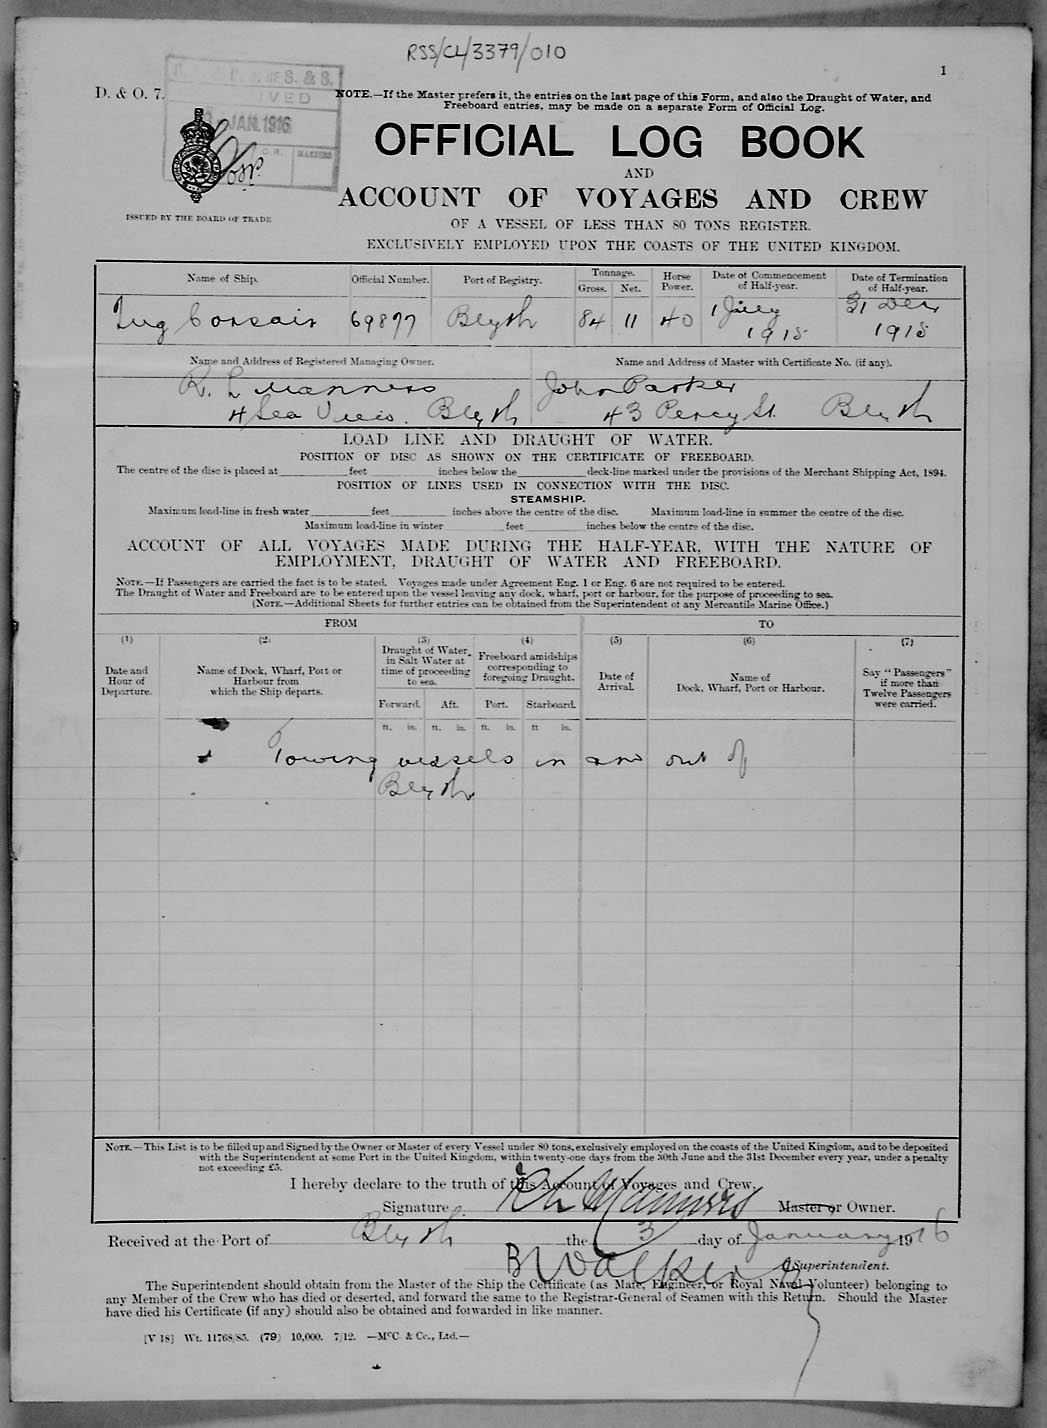 RSS/CL/3379/010
1
D. & O. 7.
S. & S.
JAN.1916
C.R.
MASTERS
ISSUED BY THE BOARD OF TRADE
NOTE.—If the Master prefers it, the entries on the last page of this Form, and also the Draught of Water, and
Freeboard entries, may be made on a separate Form of Official Log.
OFFICIAL LOG BOOK
AND
ACCOUNT OF VOYAGES AND CREW
OF A VESSEL OF LESS THAN 80 TONS REGISTER.
EXCLUSIVELY EMPLOYED UPON THE COASTS OF THE UNITED KINGDOM.
Name of Ship. Official Number. Port of Registry. Tonnage. Gross. Net. Horse Power. Date of Commencement of Half-year. Date of Termination of Half-year.
Tug Corsair 69877 Blyth 84 11 40 1 July 1915 31 Decr 1915
Name and Address of Registered Managing Owner. Name and Address of Master with Certificate No. (if any).
R. L Manners John Parker
4 Sea View. Blyth 43 Percy St. Blyth
LOAD LINE AND DRAUGHT OF WATER.
POSITION OF DISC AS SHOWN ON THE CERTIFICATE OF FREEBOARD.
The centre of the disc is placed at feet inches below the deck-line marked under the provisions of the Merchant Shipping Act, 1894.
POSITION OF LINES USED IN CONNECTION WITH THE DISC.
STEAMSHIP.
Maximum load-line in fresh water feet inches above the centre of the disc. Maximum load-line in summer the centre of the disc.
Maximum load-line in winter feet inches below the centre of the disc.
ACCOUNT OF ALL VOYAGES MADE DURING THE HALF-YEAR, WITH THE NATURE OF
EMPLOYMENT, DRAUGHT OF WATER AND FREEBOARD.
NOTE.—If Passengers are carried the fact is to be stated. Voyages made under Agreement Eng. 1 or Eng. 6 are not required to be entered.
The Draught of Water and Freeboard are to be entered upon the vessel leaving any dock, wharf, port or harbour, for the purpose of proceeding to sea.
(NOTE.—Additional Sheets for further entries can be obtained from the Superintendent of any Mercantile Marine Office.)
FROM TO
(1) (2) (3) (4) (5) (6) (7)
Date and Hour of Departure.
Name of Dock, Wharf, Port or Harbour from which the Ship departs.
Draught of Water in Salt Water at time of proceeding to sea.
Freeboard amidships corresponding to foregoing Draught.
Date of Arrival.
Name of Dock, Wharf, Port or Harbour.
Say "Passengers" if more than Twelve Passengers were carried.
Forward. Aft. Port. Starboard.
ft. in. ft. in. ft. in. ft in.
Towing vessels in and out of
Blyth
NOTE.—This List is to be filled up and Signed by the Owner or Master of every Vessel under 80 tons, exclusively employed on the coasts of the United Kingdom, and to be deposited
with the Superintendent at some Port in the United Kingdom, within twenty-one days from the 30th June and the 31st December every year, under a penalty
not exceeding £5.
I hereby declare to the truth of this Account of Voyages and Crew.
Signature R L Manners Master or Owner.
Received at the Port of Blyth the 3 day of January 1916
B Walker Superintendent.
The Superintendent should obtain from the Master of the Ship the Certificate (as Mate, Engineer, or Royal Naval Volunteer) belonging to
any Member of the Crew who has died or deserted, and forward the same to the Registrar-General of Seamen with this Return. Should the Master
have died his Certificate (if any) should also be obtained and forwarded in like manner.
[V 18] Wt. 11768/85. (79) 10,000. 7/12. —McC. & Co., Ltd.—